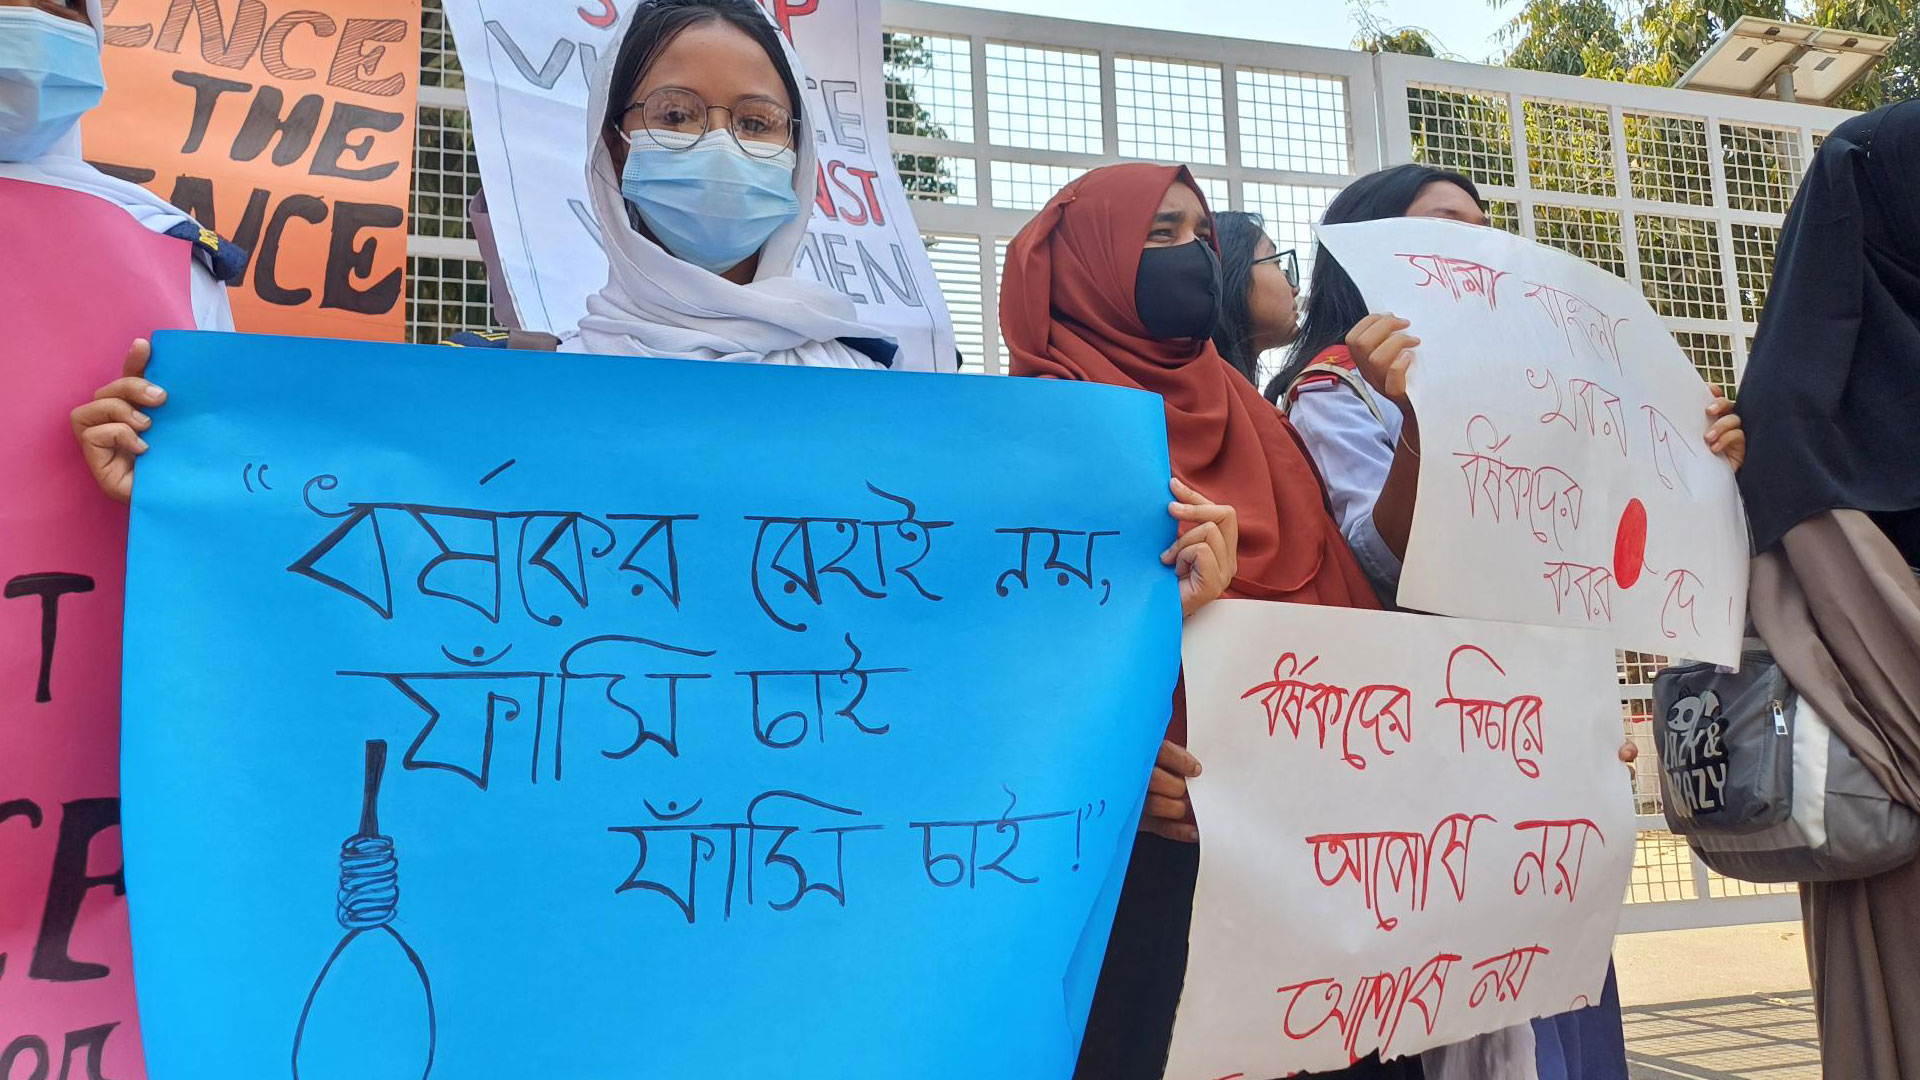 ENCE
THE
ENCE
STOP
VI NCE
NST
MEN
"ধর্ষকের রেহাই নয়,
ফাঁসি চাই
ফাঁসি চাই!"
সারা বাংলা
খবর দে
ধর্ষকদের
কবর দে।
ধর্ষকদের বিচারে
আপোষ নয়
আপোষ নয়
T
CE
OR
&
CRAZY